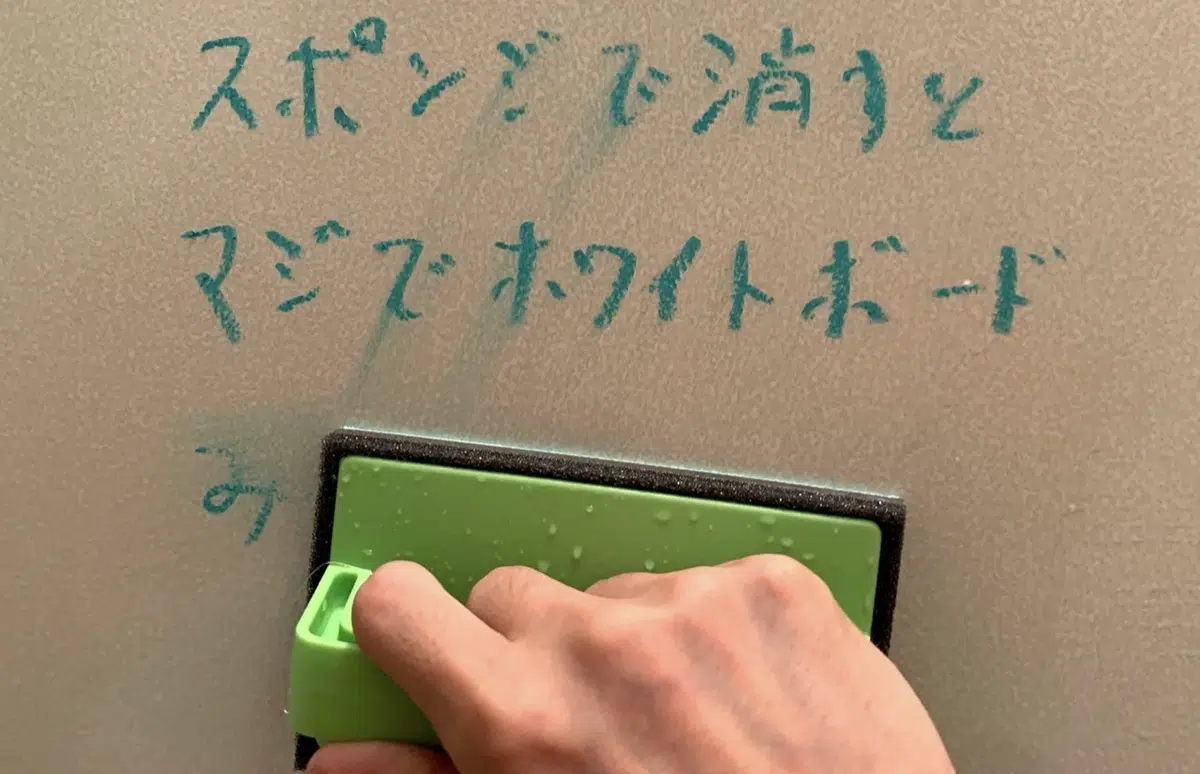 スポンジで消すと
マジでホワイトボード
み